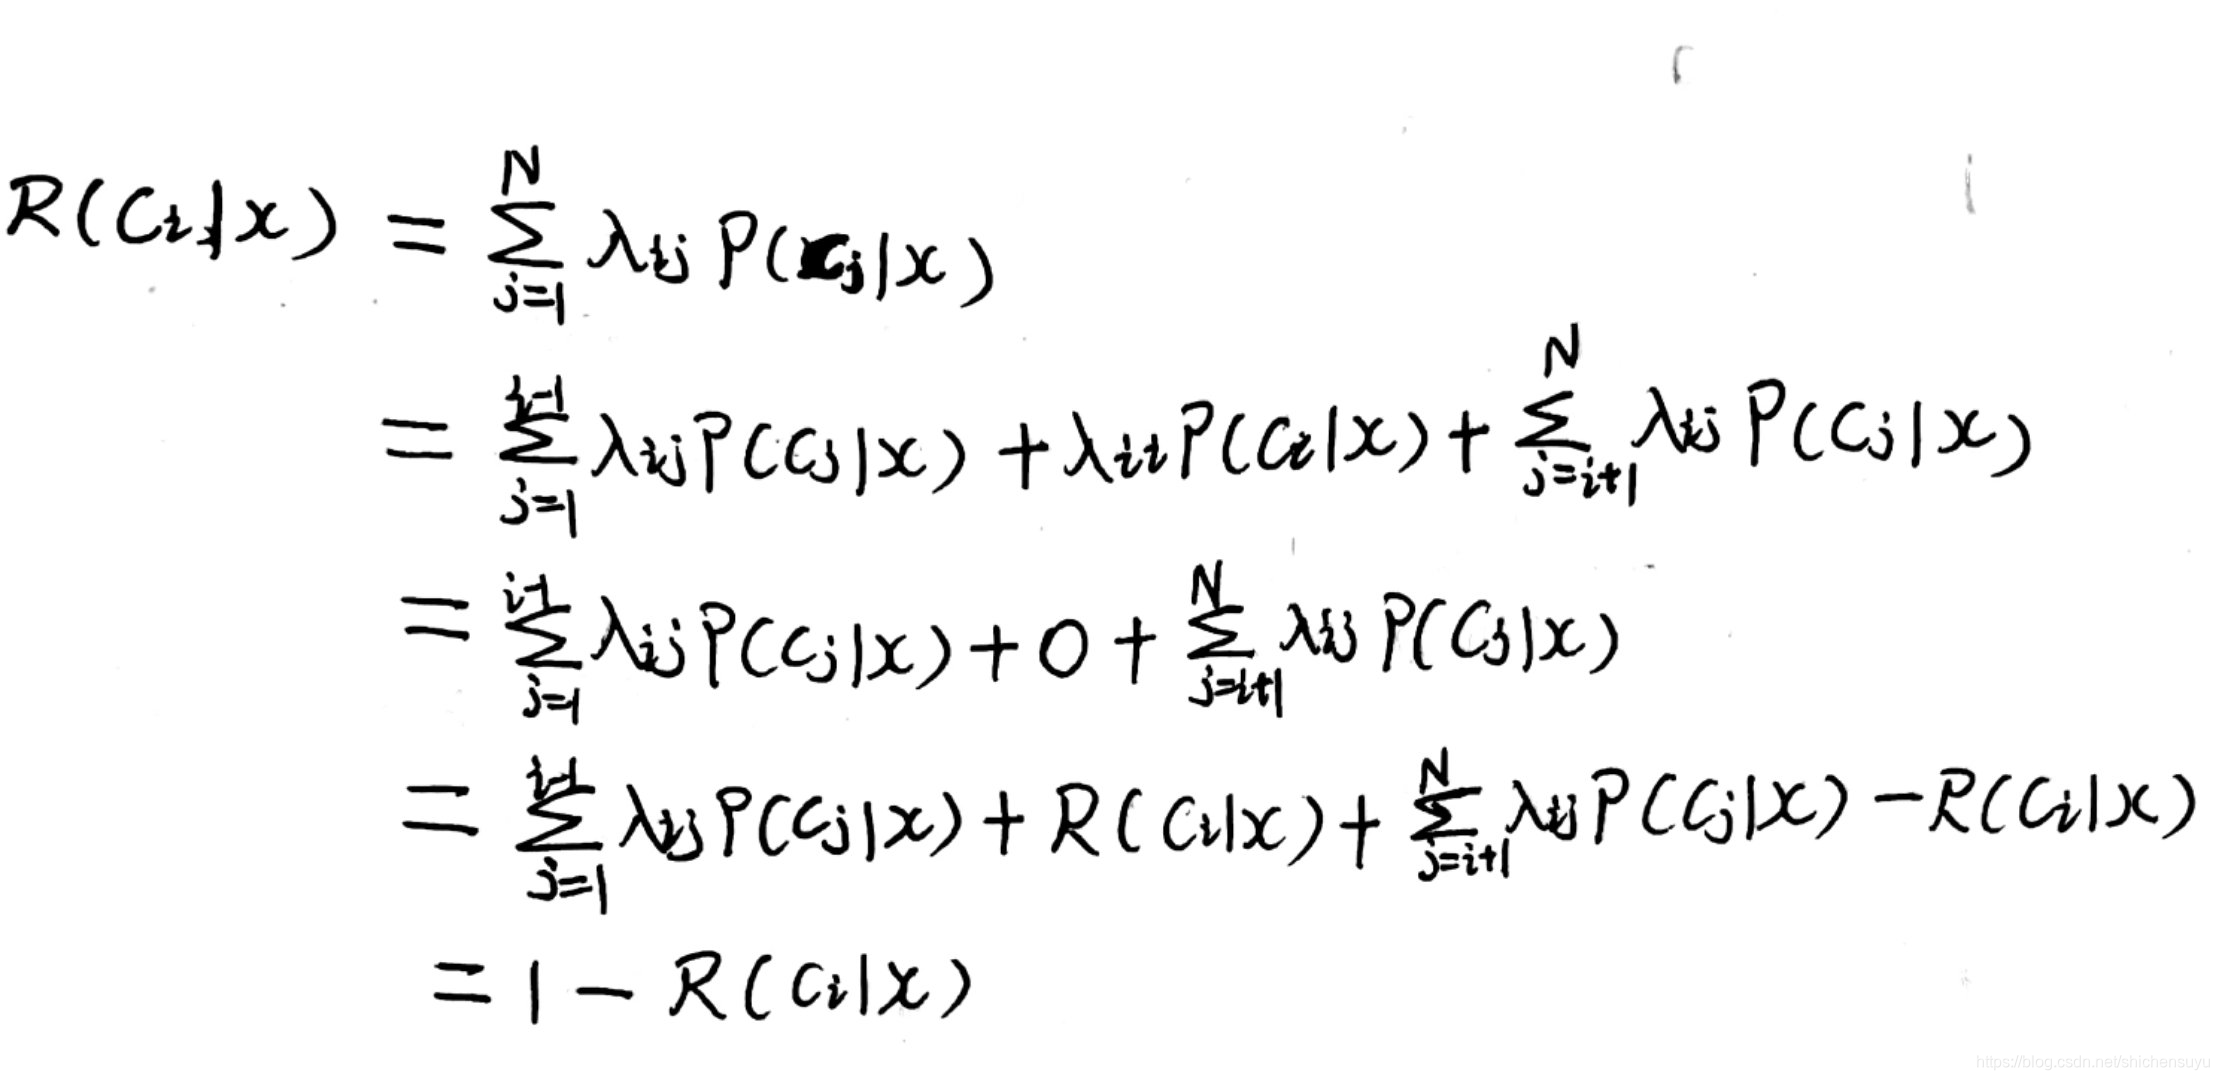 R(Ci|x) = \sum_{j=1}^{N} λij P(Cj|x)
= \sum_{j=1}^{i-1} λij P(Cj|x) + λii P(Ci|x) + \sum_{j=i+1}^{N} λij P(Cj|x)
= \sum_{j=1}^{i-1} λij P(Cj|x) + 0 + \sum_{j=i+1}^{N} λij P(Cj|x)
= \sum_{j=1}^{i-1} λij P(Cj|x) + R(Ci|x) + \sum_{j=i+1}^{N} λij P(Cj|x) - R(Ci|x)
= 1 - R(Ci|x)
https://blog.csdn.net/shichensuyu